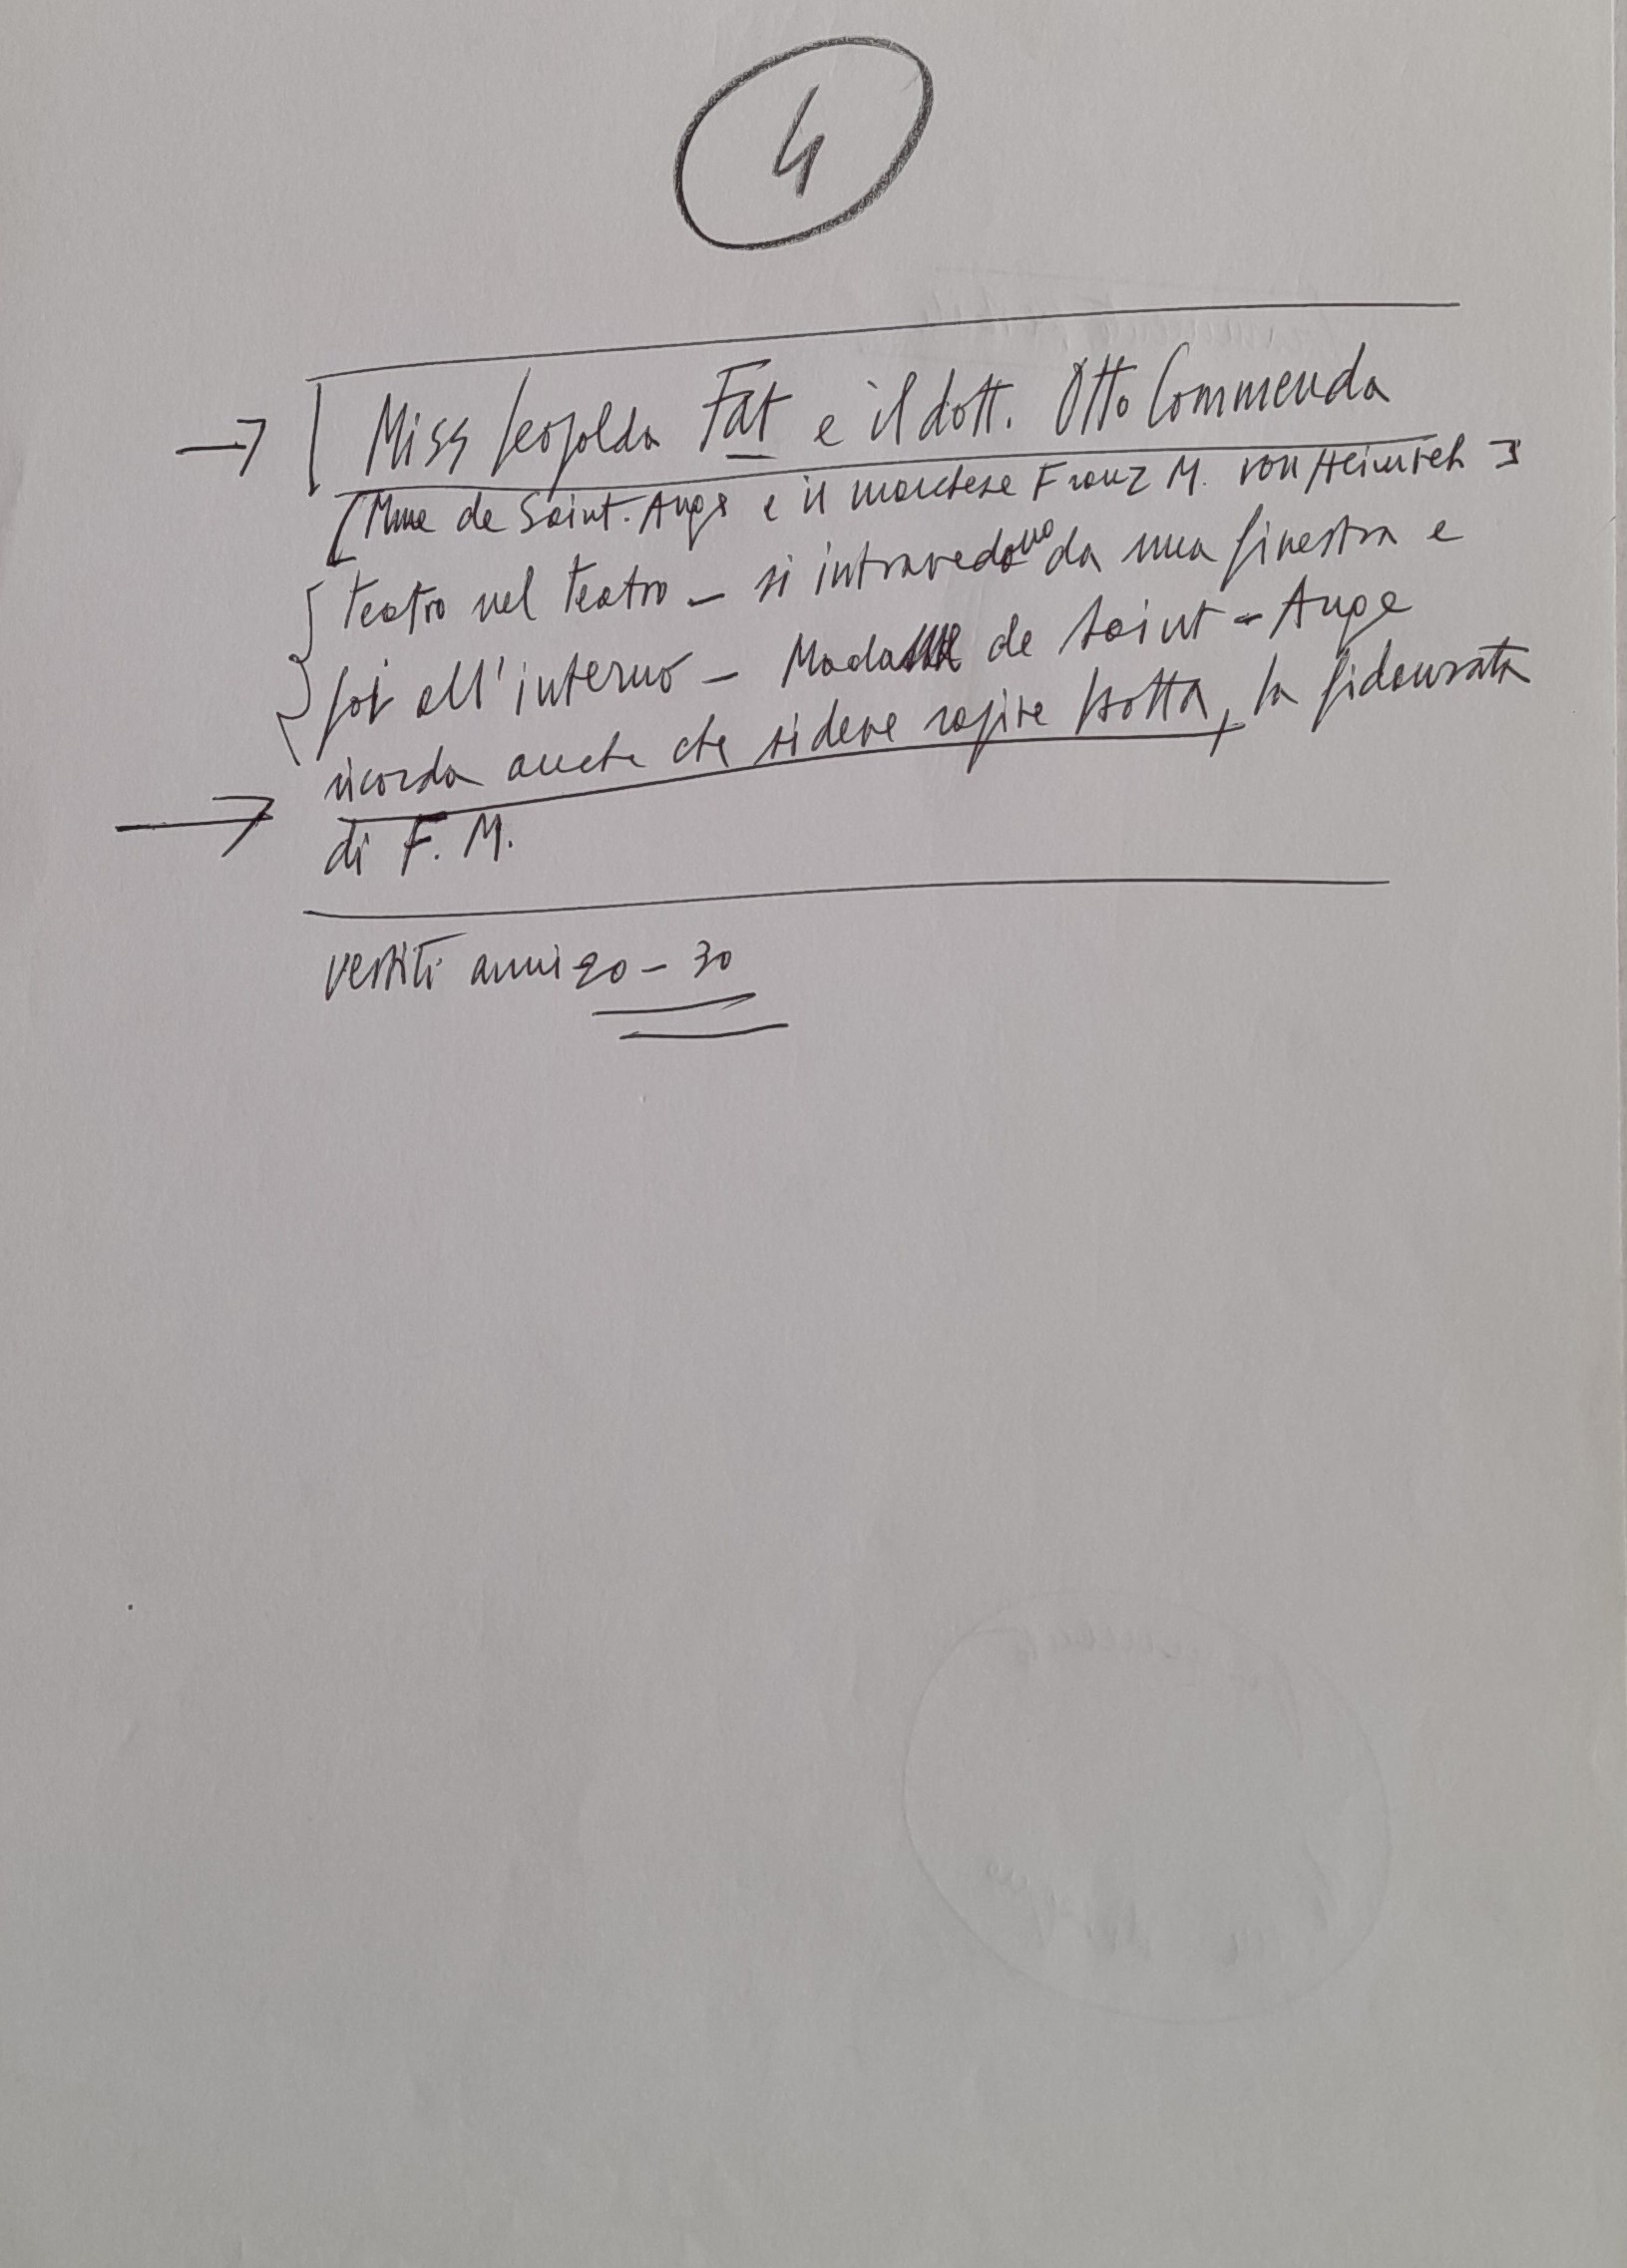 4
Miss Leopolda Fat e il dott. Otto Commenda
[Mme de Saint-Ange e il marchese Franz M. von Heinrich]
teatro nel teatro – si intravedono da una finestra e
poi all'interno – Madame de Saint-Ange
ricorda anche che si deve rapire Isotta, la fidanzata
di F. M.
vestiti anni 20 – 30